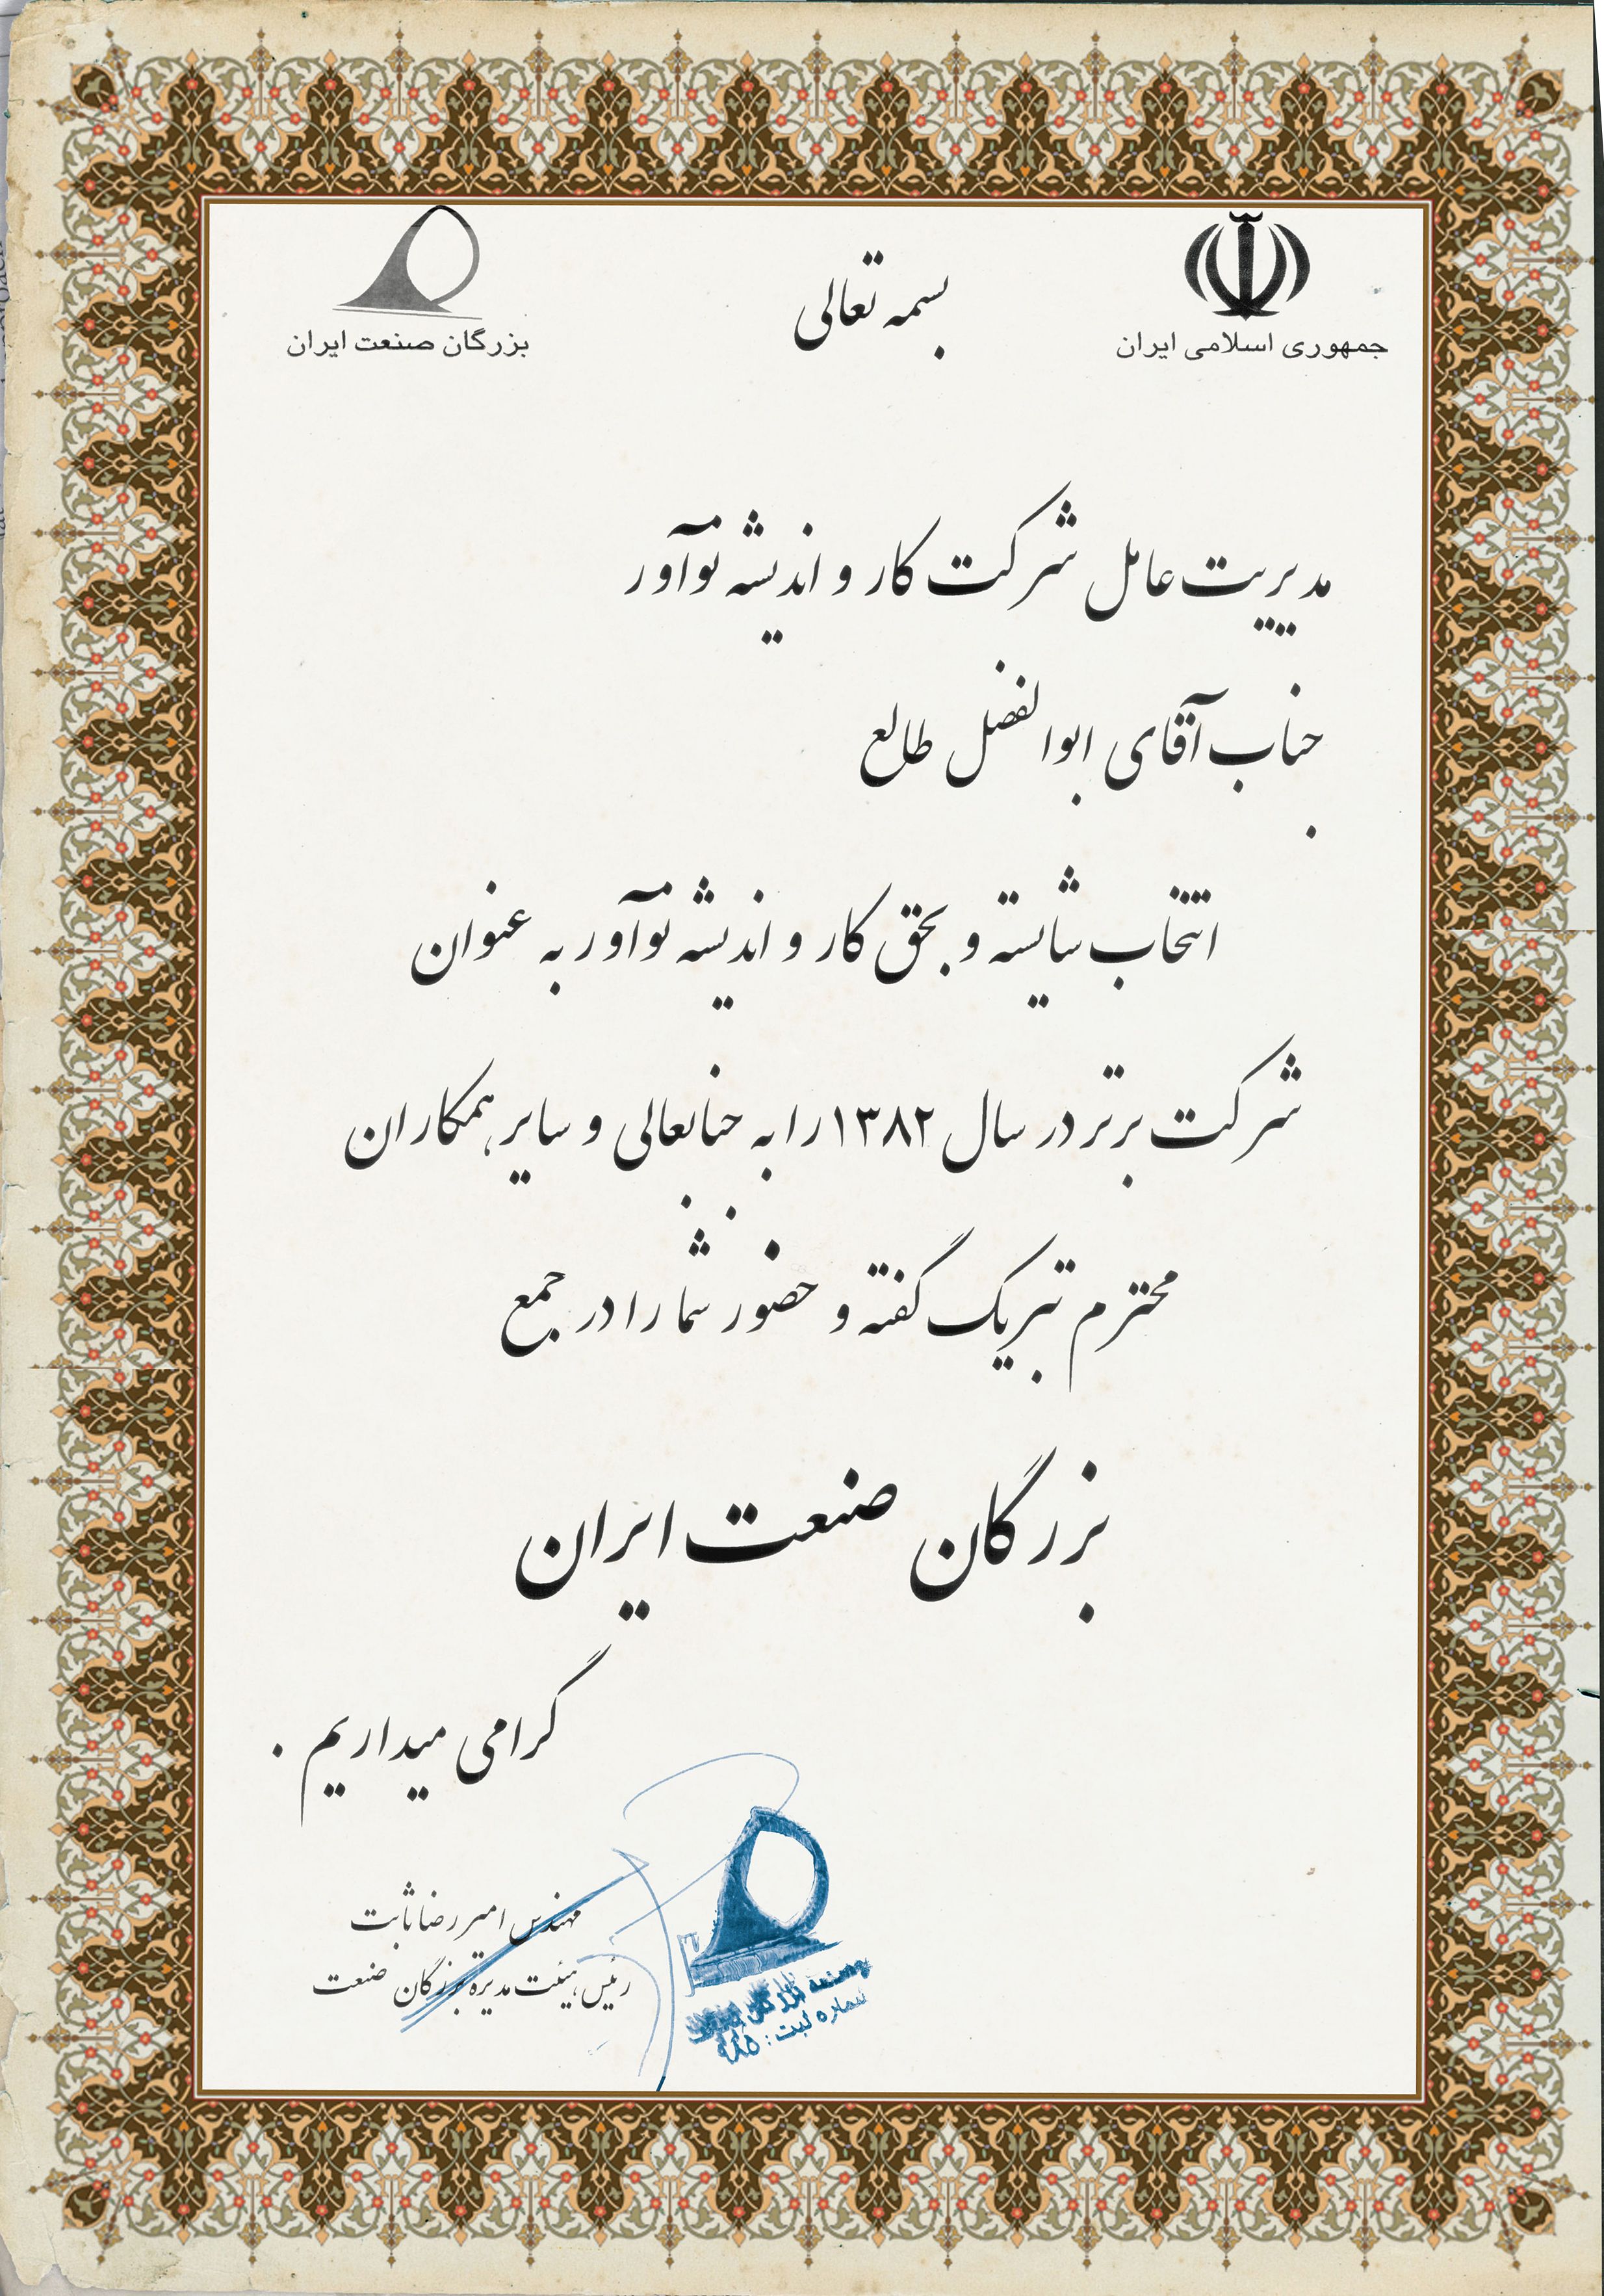 جمهوری اسلامی ایران
بسمه تعالی
بزرگان صنعت ایران
مدیریت عامل شرکت کار و اندیشه نوآور
جناب آقای ابوالفضل طالع
انتخاب شایسته و بحق کار و اندیشه نوآور به عنوان
شرکت برتر در سال ۱۳۸۲ را به جنابعالی و سایر همکاران
محترم تبریک گفته و حضور شما را در جمع
بزرگان صنعت ایران
گرامی میداریم .
مهندس امیر رضا ثابت
رئیس هیئت مدیره بزرگان صنعت
شماره ثبت : ۹۸۵